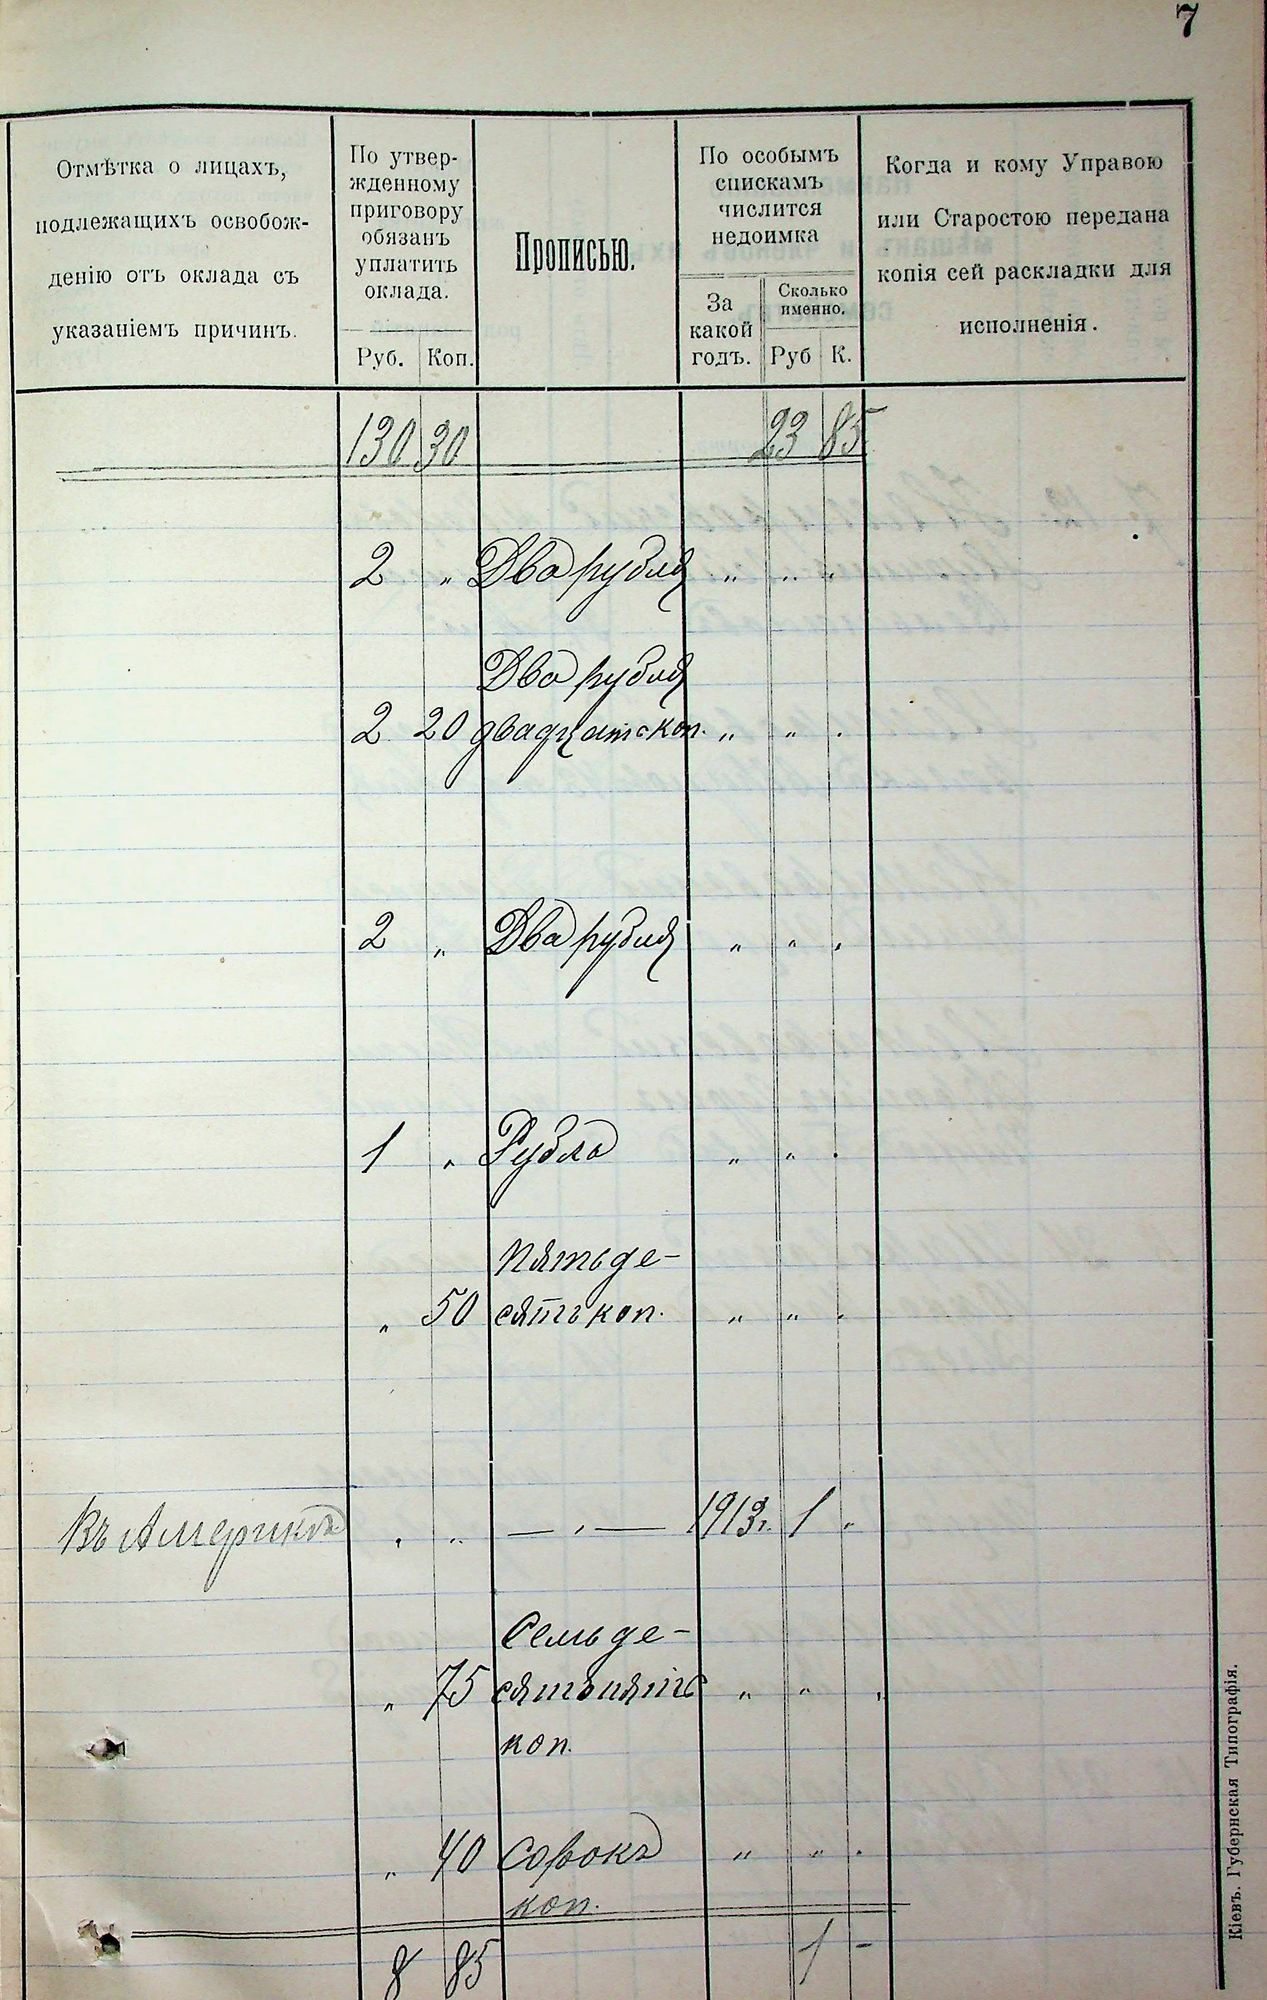 7
Отмѣтка о лицахъ,
подлежащихъ освобож-
денію отъ оклада съ
указаніемъ причинъ.
По утвер-
жденному
приговору
обязанъ
уплатить
оклада.
Руб. Коп.
Прописью.
По особымъ
спискамъ
числится
недоимка
За
какой
годъ.
Сколько
именно.
Руб К.
Когда и кому Управою
или Старостою передана
копія сей раскладки для
исполненія.
130 30 23 85
2 „ Два рубля „ „ „
Два рубля
2 20 двадцать коп. „ „ „
2 „ Два рубля „ „ „
1 „ Рубль „ „ „
Пятьде-
„ 50 сятъ коп. „ „ „
Въ Америкѣ „ „ — „ — 1913г. 1 „
Семьде-
„ 75 сятъ пять „ „ „
коп.
„ 40 Сорокъ „ „ „
коп.
8 85 1 -
Кіевъ. Губернская Типографія.